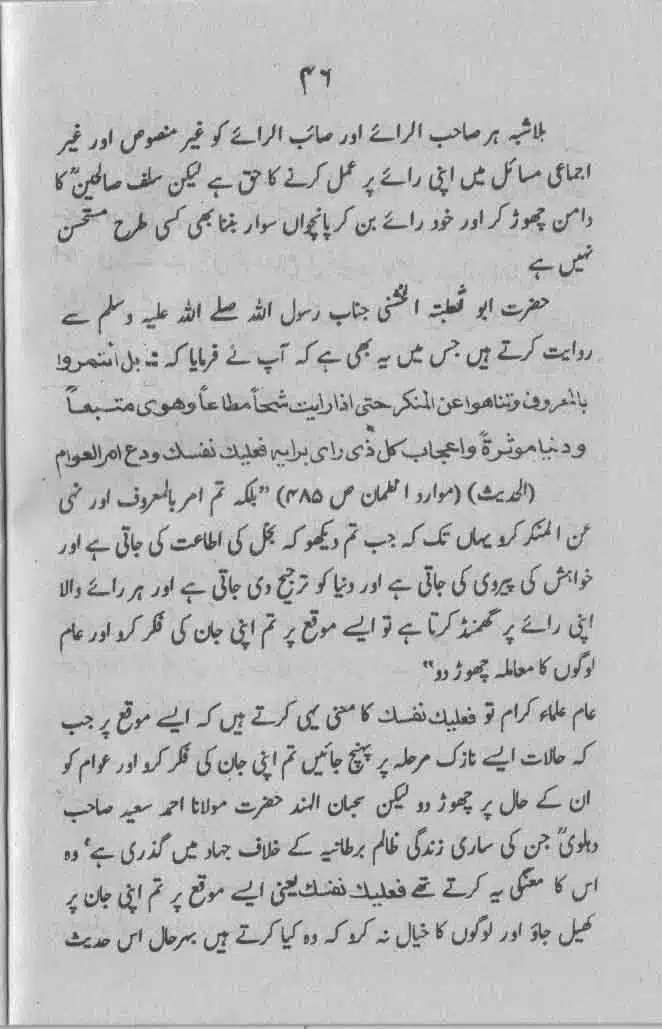 ۴۶
بلاشبہ ہر صاحب الرائے اور صائب الرائے کو غیر منصوص اور غیر
اجماعی مسائل میں اپنی رائے پر عمل کرنے کا حق ہے لیکن سلف صالحینؒ کا
دامن چھوڑ کر اور خود رائے بن کر پانچواں سوار بننا بھی کسی طرح مستحسن
نہیں ہے
حضرت ابو ثعلبتہ الخشنی جناب رسول اللہ صلے اللہ علیہ وسلم سے
روایت کرتے ہیں جس میں یہ بھی ہے کہ آپ نے فرمایا کہ :۔ بل ائتمروا
بالمعروف وتناهوا عن المنکر حتی اذا رایت شحاً مطاعاً وهوی متبعاً
ودنیا موثرةً واعجاب کل ذی رای برایه فعلیك نفسك ودع امر العوام
(الحدیث) (موارد الظمان ص ۴۸۵) ”بلکہ تم امر بالمعروف اور نہی
عن المنکر کرو یہاں تک کہ جب تم دیکھو کہ بخل کی اطاعت کی جاتی ہے اور
خواہش کی پیروی کی جاتی ہے اور دنیا کو ترجیح دی جاتی ہے اور ہر رائے والا
اپنی رائے پر گھمنڈ کرتا ہے تو ایسے موقع پر تم اپنی جان کی فکر کرو اور عام
لوگوں کا معاملہ چھوڑ دو“
عام علماء کرام تو فعلیك نفسك کا معنی یہی کرتے ہیں کہ ایسے موقع پر جب
کہ حالات ایسے نازک مرحلہ پر پہنچ جائیں تم اپنی جان کی فکر کرو اور عوام کو
ان کے حال پر چھوڑ دو لیکن سحبان الہند حضرت مولانا احمد سعید صاحب
دہلویؒ جن کی ساری زندگی ظالم برطانیہ کے خلاف جہاد میں گذری ہے، وہ
اس کا معنٰی یہ کرتے تھے فعلیك نفسك یعنی ایسے موقع پر تم اپنی جان پر
کھیل جاؤ اور لوگوں کا خیال نہ کرو کہ وہ کیا کرتے ہیں بہرحال اس حدیث